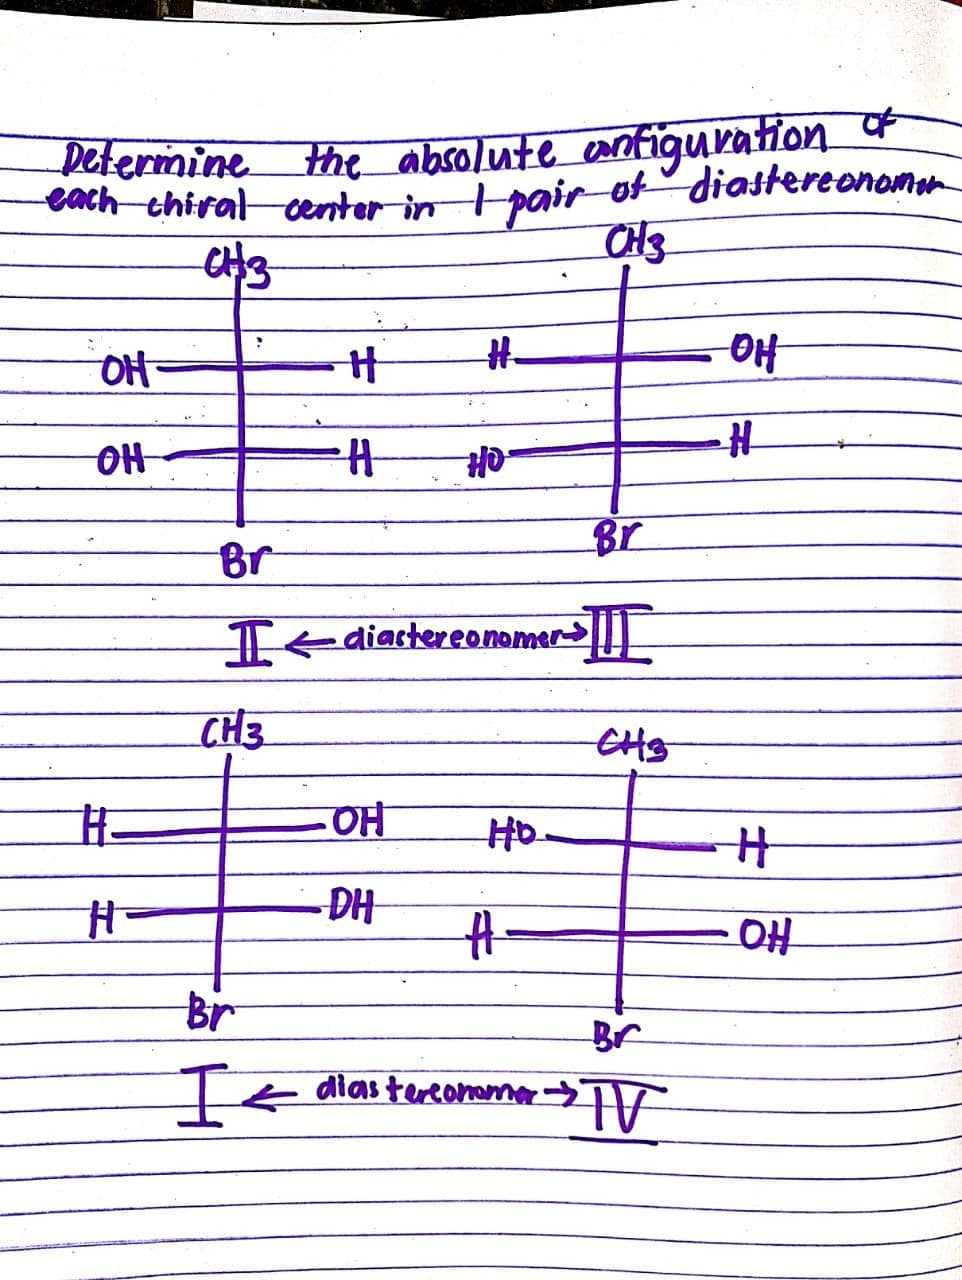 Determine the absolute configuration of
each chiral center in 1 pair of diastereonomer
CH3 CH3
OH H H OH
OH H HO H
Br Br
II ← diastereonomer → III
CH3 CH3
H OH HO H
H OH H OH
Br Br
I ← diastereonomer → IV